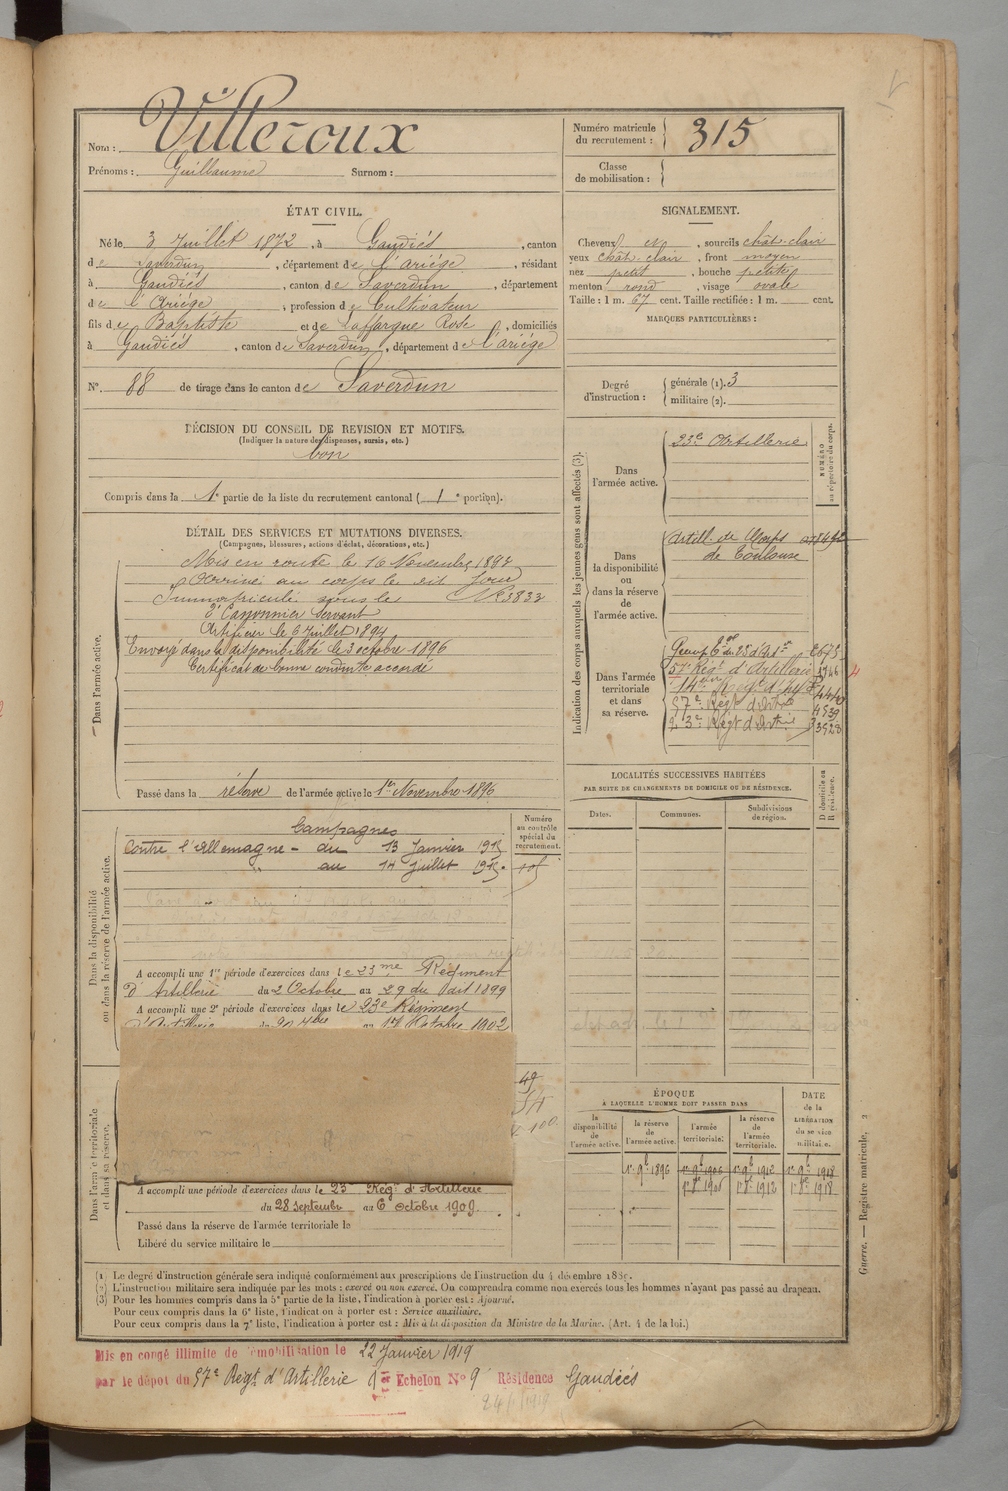 Nom : Villeroux
Prénoms : Guillaume Surnom :
Numéro matricule du recrutement : 315
Classe de mobilisation :
ÉTAT CIVIL.
Né le 3 Juillet 1872, à Gaudiès, canton
de Saverdun, département de l'Ariège, résidant
à Gaudiès, canton de Saverdun, département
de l'Ariège, profession de Cultivateur
fils de Baptiste et de Laffargue Rose, domiciliés
à Gaudiès, canton de Saverdun, département de l'Ariège
N° 88 de tirage dans le canton de Saverdun
DÉCISION DU CONSEIL DE REVISION ET MOTIFS.
(Indiquer la nature des dispenses, sursis, etc.)
bon
Compris dans la 1e partie de la liste du recrutement cantonal ( 1e portion).
SIGNALEMENT.
Cheveux , sourcils chât-clair
yeux chât-clair, front moyen
nez petit, bouche petite
menton rond, visage ovale
Taille : 1 m. 67 cent. Taille rectifiée : 1 m. cent.
MARQUES PARTICULIÈRES :
Degré d'instruction :
générale (1). 3
militaire (2).
DÉTAIL DES SERVICES ET MUTATIONS DIVERSES.
(Campagnes, blessures, actions d'éclat, décorations, etc.)
Dans l'armée active.
Mis en route le 16 Novembre 1893
Arrivé au corps le dit jour
Immatriculé sous le N° 3833
2e Canonnier Servant
Artificier le 6 Juillet 1894
Envoyé dans la disponibilité le 3 octobre 1896
Certificat de bonne conduite accordé
Passé dans la réserve de l'armée active le 1er Novembre 1896
Dans la disponibilité ou dans la réserve de l'armée active.
Numéro au contrôle spécial du recrutement.
Campagnes
Contre l'Allemagne - du 13 Janvier 1915
" au 14 Juillet 1915.
A accompli une 1re période d'exercices dans le 23me Régiment
d'Artillerie du 2 Octobre au 29 du dit 1899
A accompli une 2e période d'exercices dans le 23e Régiment
d'Artillerie Octobre 1902
Dans l'armée territoriale et dans sa réserve.
49
A accompli une période d'exercices dans le 23e Régt d'Artillerie
du 28 septembre au 6 octobre 1909.
Passé dans la réserve de l'armée territoriale le
Libéré du service militaire le
Indication des corps auxquels les jeunes gens sont affectés (3).
NUMÉRO au répertoire du corps.
Dans l'armée active.
23e Artillerie
Dans la disponibilité ou dans la réserve de l'armée active.
Artill de Corps
de Toulouse
Dans l'armée territoriale et dans sa réserve.
57e Régt d'Artillerie 1946
57e Régt d'Artie 4539
23e Régt d'Artie 3528
LOCALITÉS SUCCESSIVES HABITÉES
PAR SUITE DE CHANGEMENTS DE DOMICILE OU DE RÉSIDENCE.
Dates. Communes. Subdivisions de région. D domicile ou R résidence.
ÉPOQUE
À LAQUELLE L'HOMME DOIT PASSER DANS
la disponibilité de l'armée active. la réserve de l'armée active. l'armée territoriale. la réserve de l'armée territoriale.
DATE de la LIBÉRATION du service militaire.
1er 9bre 1896 1er 9bre 1906 1er 9bre 1912 1er 9bre 1918
1er 8bre 1906 1er 8bre 1912 1er 8bre 1918
(1) Le degré d'instruction générale sera indiqué conformément aux prescriptions de l'instruction du 4 décembre 1889.
(2) L'instruction militaire sera indiquée par les mots : exercé ou non exercé. On comprendra comme non exercés tous les hommes n'ayant pas passé au drapeau.
(3) Pour les hommes compris dans la 5e partie de la liste, l'indication à porter est : Ajourné.
Pour ceux compris dans la 6e liste, l'indication à porter est : Service auxiliaire.
Pour ceux compris dans la 7e liste, l'indication à porter est : Mis à la disposition du Ministre de la Marine. (Art. 4 de la loi.)
Guerre. — Registre matricule. 2
Mis en congé illimité de démobilisation le 22 Janvier 1919
par le dépôt du 57e Régt d'Artillerie Echelon N° 9 Résidence Gaudiès